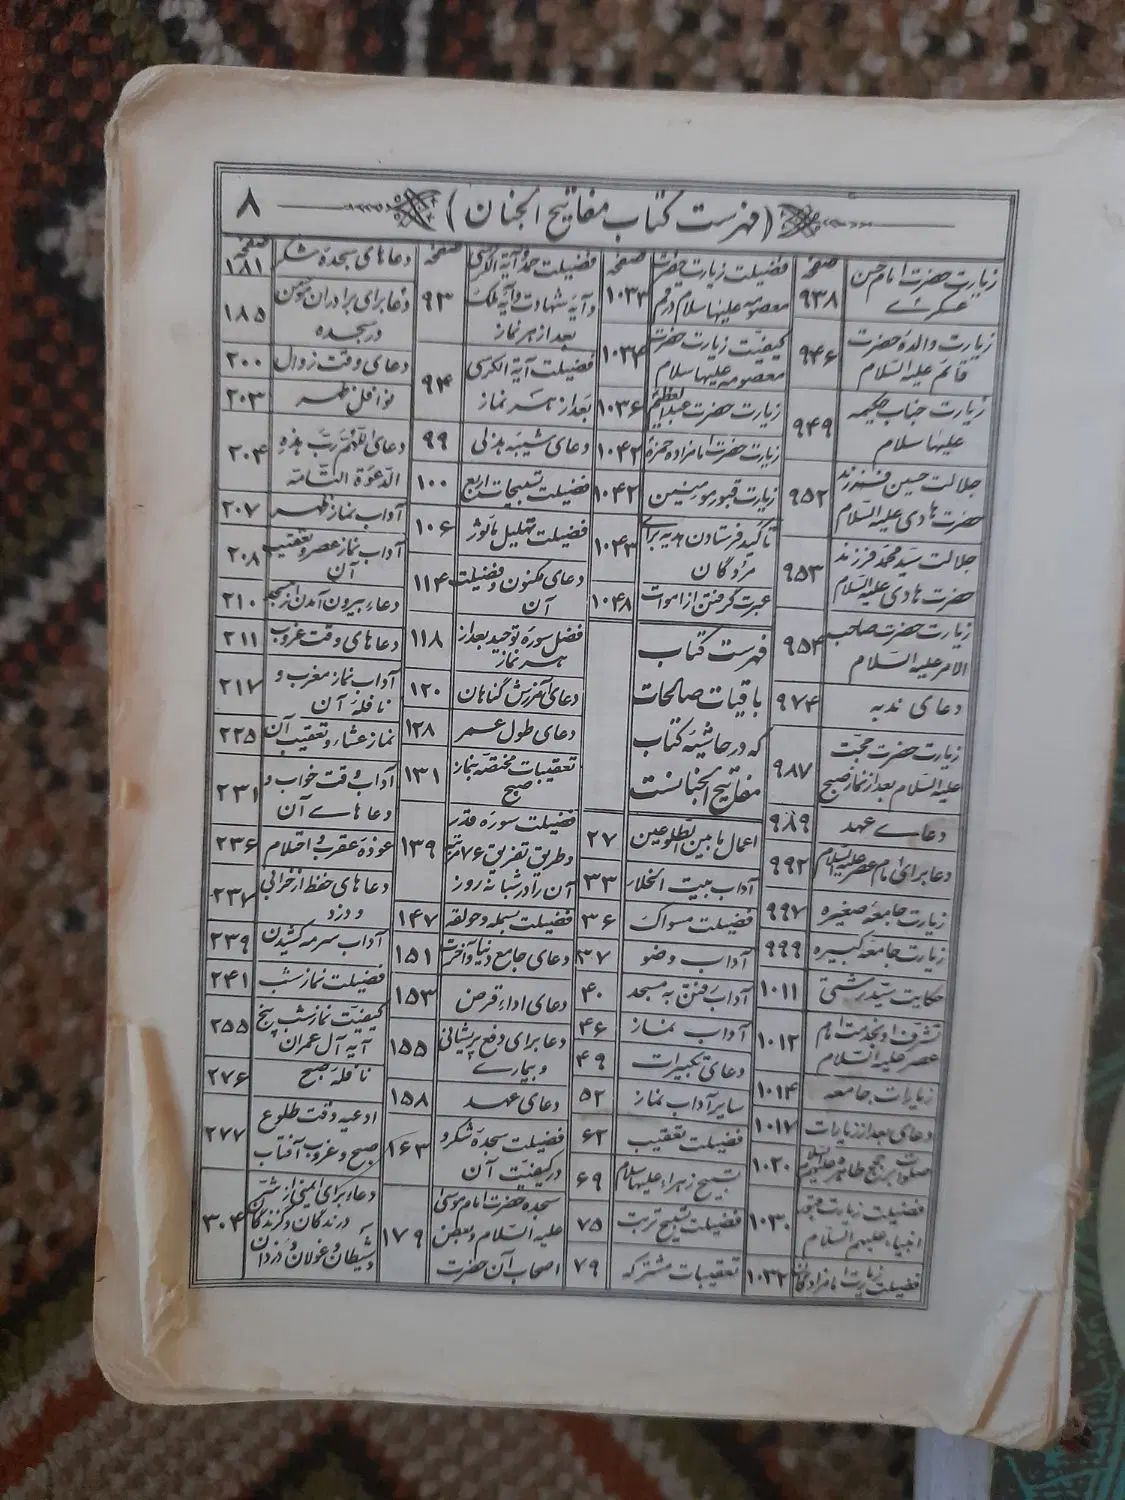 (فهرست کتاب مفاتیح الجنان) ۸
صفحه
زیارت حضرت امام حسن
عسکری ۹۳۸
زیارت والده حضرت
قائم علیه السلام ۹۴۶
زیارت جناب حکیمه
علیها سلام ۹۴۹
جلالت حسین فرزند
حضرت هادی علیه السلام ۹۵۲
جلالت سید محمد فرزند
حضرت هادی علیه السلام ۹۵۳
زیارت حضرت صاحب
الامر علیه السلام ۹۵۴
دعای ندبه ۹۷۴
زیارت حضرت حجت
علیه السلام بعد از نماز صبح ۹۸۷
دعای عهد ۹۸۹
دعا برای امام عصر علیه السلام ۹۹۲
زیارت جامعه صغیره ۹۹۷
زیارت جامعه کبیره ۹۹۹
حکایت سید رشتی ۱۰۱۱
تشرف او بخدمت امام
عصر علیه السلام ۱۰۱۲
زیارات جامعه ۱۰۱۴
دعای بعد از زیارات ۱۰۱۷
صلوات بر حجج طاهره علیهم السلام ۱۰۲۰
فضیلت زیارت
انبیاء علیهم السلام ۱۰۳۰
فضیلت زیارت امامزادگان ۱۰۳۲
صفحه
فضیلت زیارت حضرت
معصومه علیها سلام در قم ۱۰۳۳
کیفیت زیارت حضرت
معصومه علیها سلام ۱۰۳۴
زیارت حضرت عبدالعظیم ۱۰۳۶
زیارت حضرت امامزاده حمزه ۱۰۴۲
زیارت قبور مومنین ۱۰۴۲
تاکید فرستادن هدیه برای
مردگان ۱۰۴۳
عبرت گرفتن از اموات ۱۰۴۸
فهرست کتاب
باقیات صالحات
که در حاشیه کتاب
مفاتیح الجنانست
اعمال ما بین الطلوعین ۲۷
آداب بیت الخلاء ۳۳
فضیلت مسواک ۳۶
آداب وضو ۳۷
آداب رفتن به مسجد ۴۰
آداب نماز ۴۶
دعای تکبیرات ۴۹
سایر آداب نماز ۵۲
فضیلت تعقیب ۶۲
تسبیح زهراء علیها سلام ۶۹
فضیلت تسبیح تربت ۷۵
تعقیبات مشترکه ۷۹
صفحه
فضیلت حمد و آیة الکرسی
و آیه شهادت و آیه ملک
بعد از هر نماز ۹۳
فضیلت آیة الکرسی
بعد از هر نماز ۹۴
دعای شیبه هذلی ۹۹
فضیلت تسبیحات اربع ۱۰۰
فضیلت تهلیل ماثور ۱۰۶
دعای مکنون و فضیلت
آن ۱۱۴
فضل سوره توحید بعد از
هر نماز ۱۱۸
دعای آمرزش گناهان ۱۲۰
دعای طول عمر ۱۲۸
تعقیبات مختصه بنماز
صبح ۱۳۱
فضیلت سوره قدر
و طریق تفریق ۷۶ مرتبه
آن را در شبانه روز ۱۳۹
فضیلت بسمله و حولقه ۱۴۷
دعای جامع دنیا و آخرت ۱۵۱
دعای اداء قرض ۱۵۳
دعا برای دفع پریشانی
و بیماری ۱۵۵
دعای عهد ۱۵۸
فضیلت سجده شکر و
در کیفیت آن ۱۶۳
سجده حضرت امام موسی
علیه السلام و بعض
اصحاب آن حضرت ۱۷۹
صفحه
دعاهای سجده شکر ۱۸۱
دعا برای برادران مؤمن
در سجده ۱۸۵
دعای وقت زوال ۲۰۰
نوافل ظهر ۲۰۳
دعای اللهم رب هذه
الدعوة التامة ۲۰۴
آداب نماز ظهر ۲۰۷
آداب نماز عصر و تعقیب
آن ۲۰۸
دعاء بیرون آمدن از مسجد ۲۱۰
دعاهای وقت غروب ۲۱۱
آداب نماز مغرب و
نافله آن ۲۱۷
نماز عشاء و تعقیب آن ۲۲۵
آداب وقت خواب و
دعاهای آن ۲۳۱
عوذه عقرب و احتلام ۲۳۶
دعاهای حفظ از خرابی
و دزد ۲۳۷
آداب سرمه کشیدن ۲۳۹
فضیلت نماز شب ۲۴۱
کیفیت نماز شب پنج
آیه آل عمران ۲۵۵
نافله صبح ۲۷۶
ادعیه وقت طلوع
صبح و غروب آفتاب ۲۷۷
دعاء برای ایمنی از شر
درندگان و گزندگان
و شیطان و غولان و دزدان ۳۰۴